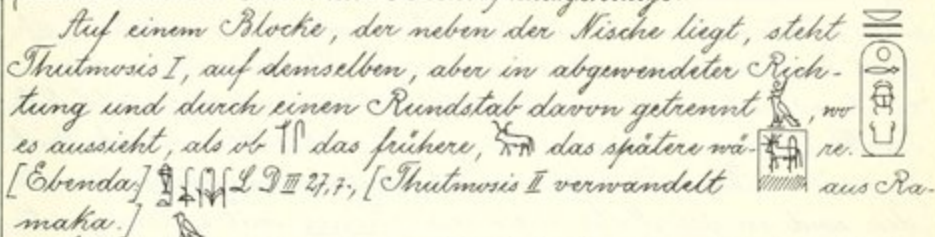 Auf einem Blocke, der neben der Nische liegt, steht
Thutmosis I, auf demselben, aber in abgewendeter Rich-
tung und durch einen Rundstab davon getrennt, wo
es aussieht, als ob das frühere, das spätere wä- re.
[Ebenda:] L D III 27,7., [Thutmosis II verwandelt aus Ra-
maka.]